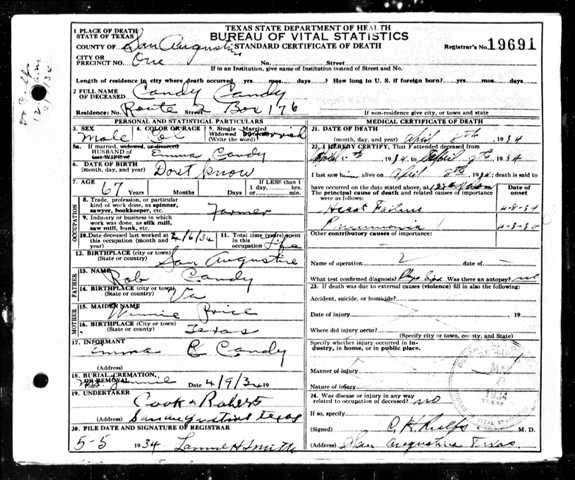 TEXAS STATE DEPARTMENT OF HEALTH
BUREAU OF VITAL STATISTICS
STANDARD CERTIFICATE OF DEATH
Registrar's No. 19691
1 PLACE OF DEATH
STATE OF TEXAS
COUNTY OF San Augustine
CITY OR PRECINCT One No. Street
If in an Institution, give name of Institution instead of Street and No.
Length of residence in city where death occurred yrs. mos. days? How long in U. S. if foreign born? yrs. mos. days
2 FULL NAME OF DECEASED Candy Candy
Residence: No. Route 2 Box 176
If non-residence give city, or town and state
PERSONAL AND STATISTICAL PARTICULARS
3. SEX male
4. COLOR OR RACE Col
5. Single Married
5a. If married, widowed, or divorced
HUSBAND OF Emma Candy
6. DATE OF BIRTH Dont Know
7. AGE 67 Years Months Days
If LESS than 1 day, hrs. min.
OCCUPATION
8. Trade, profession, or particular kind of work done, as spinner, sawyer, bookkeeper, etc. Farmer
9. Industry or business in which work was done, as silk mill, saw mill, bank, etc.
10. Date deceased last worked at this occupation (month and year) 2/6/34
11. Total time (years) spent in this occupation Life
12. BIRTHPLACE (city or town) (State or country) San Augustine
FATHER
13. NAME Rob Candy
14. BIRTHPLACE (city or town) (State or country) Va
MOTHER
15. MAIDEN NAME Winnie Price
16. BIRTHPLACE (City or town) (State or country) Texas
17. INFORMANT Emma C Candy
(Address)
18. BURIAL, CREMATION, OR REMOVAL Date 4/9/34 19
19. UNDERTAKER Cook & Roberts
(Address) San augustine texas
20. FILE DATE AND SIGNATURE OF REGISTRAR
5-5 1934 Lannie H Smith
MEDICAL CERTIFICATE OF DEATH
21. DATE OF DEATH April 8th 1934
22. I HEREBY CERTIFY, That I attended deceased from
1934 to April 8th 1934
I last saw him alive on April 8th 1934; death is said to have occurred on the date stated above, at
The principal cause of death and related causes of importance were:
Date of onset
Heart Failure 4-8-34
Pneumonia 4-3-34
Other contributory causes of importance:
Name of operation date of
What test confirmed diagnosis? Was there an autopsy? no
23. If death was due to external causes (violence) fill in also the following:
Accident, suicide, or homicide?
Date of injury 19
Where did injury occur?
(Specify city or town, county, and State)
Specify whether injury occurred in industry, in home, or in public place.
Manner of injury
Nature of injury
24. Was disease or injury in any way related to occupation of deceased? no
If so, specify
(Signed) M. D.
(Address) San Augustine Texas